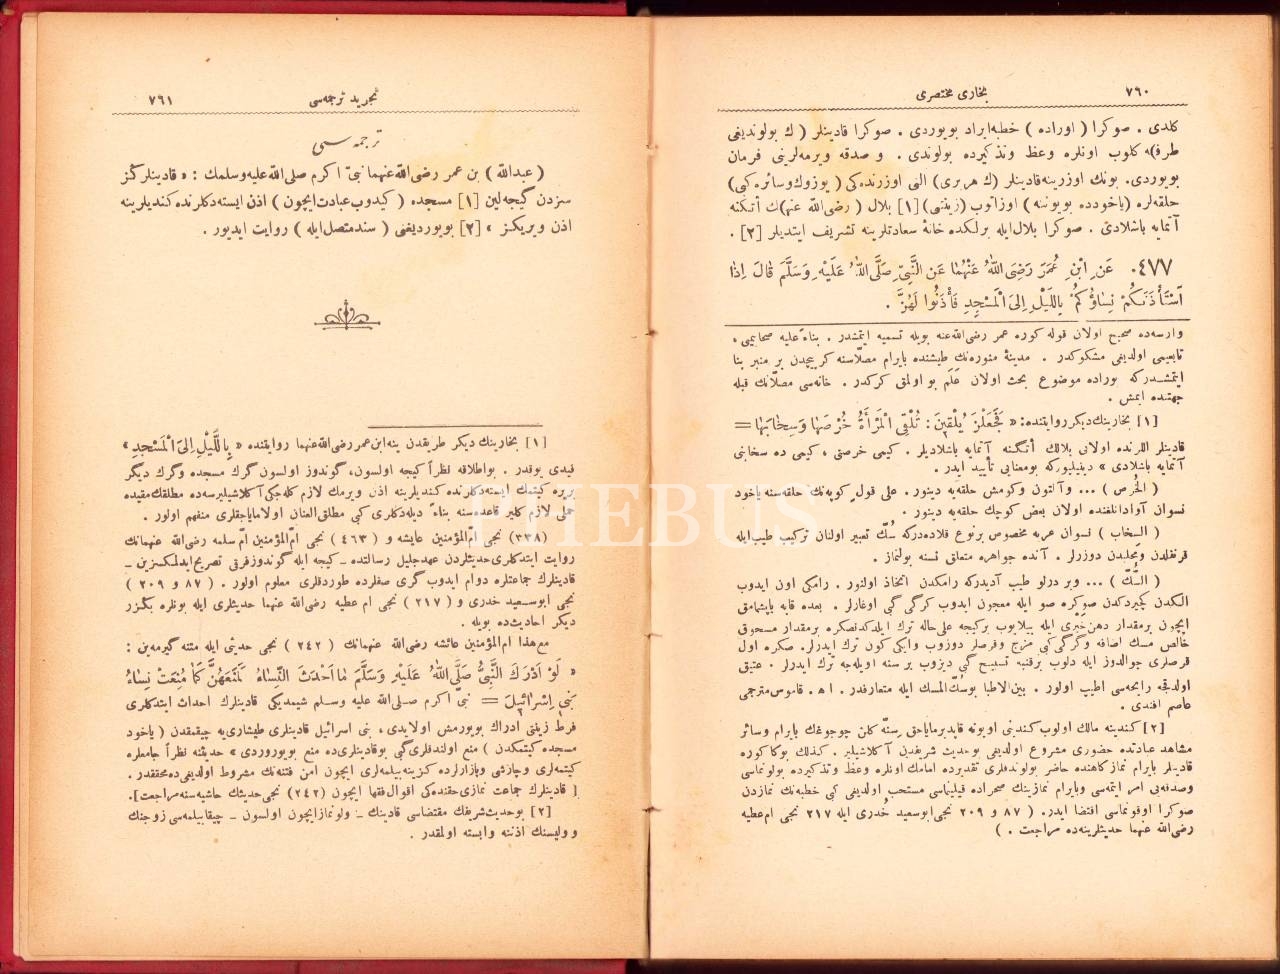 ٧٦٠
بخارى مختصرى
كلدى . صوكرا ( اوراده ) خطبه ايراد بويوردى . صوكرا قادينلر ( ك بولونديغى
طرفه كلوب اونلره وعظ وتذكيرده بولوندى . و صدقه ويرمه لرينى فرمان
بويوردى. بونك اوزرينه قادينلر (ك هربرى) الى اوزرنده كى ( يوزوك وسائره كبى)
حلقه لره (ياخودده بويوننه ) اوزاتوب (زينتنى) [١] بلال ( رضى الله عنه)ك أتكنه
آتمايه باشلادى . صوكرا بلال ايله برلكده خانۀ سعادتلرينه تشريف ايتديلر [٢] .
٤٧٧. عَنِ ابْنِ عُمَرَ رَضِىَ اللّٰهُ عَنْهُمَا عَنِ النَّبِىِّ صَلَّى اللّٰهُ عَلَيْهِ وَسَلَّمَ قَالَ اِذَا
اسْتَأْذَنَكُمْ نِسَاؤُكُمْ بِاللَّيْلِ اِلَى الْمَسْجِدِ فَأْذَنُوا لَهُنَّ .
وارسه ده صحيح اولان قوله كوره عمر رضى الله عنه بويله تسميه ايتمشدر . بناءً عليه صحابيمى ،
تابعيمى اولديغى مشكوكدر . مدينۀ منوره نك طيشنده بايرام مصلّاسنه كرپيچدن بر منبر بنا
ايتمشـدركه بوراده موضوع بحث اولان عَلَم بو اولمق كركدر . خانه سى مصلّانك قبله
جهتنده ايمش .
[١] بخارينك ديكر روايتنده: « فَجَعَلْنَ يُلْقِينَ : تُلْقِى الْمَرْأَةُ خُرْصَهَا وَسِخَابَهَا =
قادينلر اللرنده اولانى بلالك أتكنه آتمايه باشلاديلر . كيمى خرصنى ، كيمى ده سخابنى
آتمايه باشلادى » دينيليوركه بومعنايى تأييد ايدر.
( الخُرص ) ... وآلتون وكومش حلقه يه دينور . على قول كوپه نك حلقه سنه ياخود
نسوان آوادانلغنده اولان بعض كوچك حلقه يه دينور .
( السخاب ) نسوان عربه مخصوص برنوع قلاده دركه سُكّ تعبير اولنان تركيب طيب ايله
قرنفلدن ومحلبدن دوزرلر . آنده جواهره متعلق نسنه بولنماز .
( السُّكّ ) ... وبر درلو طيب آديدركه رامكدن اتخاذ اولنور . رامكى اون ايدوب
الكدن كچيردكدن صوكره صو ايله معجون ايدوب كركى كبى اوغارلر . بعده قابه ياپشمامق
ايچون برمقدار دهن خيرى ايله بيلايوب بركيجه على حاله ترك ايلدكدنصكره برمقدار مسحوق
خالص مسك اضافه وكركى كبى مزج وقرصلر دوزوب وايكى كون ترك ايدرلر. صكره اول
قرصلرى جوالدوز ايله دلوب برقنبه تسبيح كبى ديزوب بر سنه اويله جه ترك ايدرلر . عتيق
اولدقجه رايحه سى اطيب اولور . بين الاطبا بوسُك المسك ايله متعارفدر . ا ه . قاموس مترجمى
عاصم افندى .
[٢] كندينه مالك اولوب كندينى اويونه قايديرماياجق سِنّه كلن چوجوغك بايرام وسائر
مشاهد عبادتده حضورى مشروع اولديغى بوحديث شريفدن آكلاشيلير . كذلك بوكا كوره
قادينلر بايرام نمازكاهنده حاضر بولوندقلرى تقديرده امامك اونلره وعظ وتذكيرده بولونماسى
وصدقه يى امر ايتمه سى وبايرام نمازينك صحراده قيلينماسى مستحب اولديغى كبى خطبه نك نمازدن
صوكرا اوقونماسى اقتضا ايدر. ( ٨٧ و ٢٠٩ نجى ابو سعيد خُدرى ايله ٢١٧ نجى ام عطيه
رضى الله عنهما حديثلرينه ده مراجعت . )
تجريد ترجمه سى
٧٦١
ترجمه سى
( عبدالله ) بن عمر رضى الله عنهما نبىّ اكرم صلى الله عليه وسلمك : « قادينلركز
سزدن گيجه لين [١] مسجده ( كيدوب عبادت ايچون ) اذن ايسته دكلرنده كنديلرينه
اذن ويريكز » [٢] بويورديغنى ( سند متصل ايله ) روايت ايديور .
[١] بخارينك ديكر طريقدن ينه ابن عمر رضى الله عنهما روايتنده « بِاللَّيْلِ اِلَى الْمَسْجِدِ »
قيدى يوقدر . بواطلاقه نظراً كيجه اولسون، گوندوز اولسون گرك مسجده وگرك ديگر
بريره كيتمك ايسته دكلرنده كنديلرينه اذن ويرمك لازم كله جكى آكلاشيليرسه ده مطلقك مقيده
حملى لازم كلير قاعده سنه بناءً ديله دكلرى كبى مطلق العنان اولاماياجقلرى منفهم اولور .
(٣٣٨) نجى امّ المؤمنين عايشه و (٤٦٣ ) نجى امّ المؤمنين امّ سلمه رضى الله عنهمانك
روايت ايتدكلرى حديثلردن عهد جليل رسالتده ـ كيجه ايله گوندوز فرقى تصريح ايدلمكسزين ـ
قادينلرك جماعتلره دوام ايدوب گرى صفلرده طوردقلرى معلوم اولور . ( ٨٧ و ٢٠٩ )
نجى ابو سـعيد خدرى و ( ٢١٧ ) نجى ام عطيه رضى الله عنهما حديثلرى ايله بونلره بكزر
ديكر احاديث ده بويله .
مع هذا ام المؤمنين عائشه رضى الله عنهمانك ( ٢٤٢ ) نجى حديثى ايله متنه گيرمه ين :
« لَوْ اَدْرَكَ النَّبِىُّ صَلَّى اللّٰهُ عَلَيْهِ وَسَلَّمَ مَا اَحْدَثَ النِّسَاءُ لَمَنَعَهُنَّ كَمَا مُنِعَتْ نِسَاءُ
بَنِى اِسْرَائِيلَ = نبىّ اكرم صلى الله عليه وسـلم شيمديكى قادينلرك احداث ايتدكلرى
فرط زينتى ادراك بويورمش اولايدى، بنى اسرائيل قادينلرى طيشارى يه چيقمقدن ( ياخود
مسجده كيتمكدن ) منع اولندقلرى گبى بوقادينلرى ده منع بويوروردى » حديثنه نظراً جامعلره
كيتمه لرى وچارشى وبازارلرده كزينه بيلمه لرى ايچون امن فتنه نك مشروط اولديغى ده محققدر .
[ قادينلرك جماعت نمازى حقنده كى اقوال فقها ايچون (٢٤٢) نجى حديثك حاشيه سنه مراجعت].
[٢] بوحديث شريفك مقتضاسى قادينك ـ ولو نماز ايچون اولسون ـ چيقابيلمه سى زوجنك
و وليسنك اذننه وابسته اولمقدر .
PHEBUS